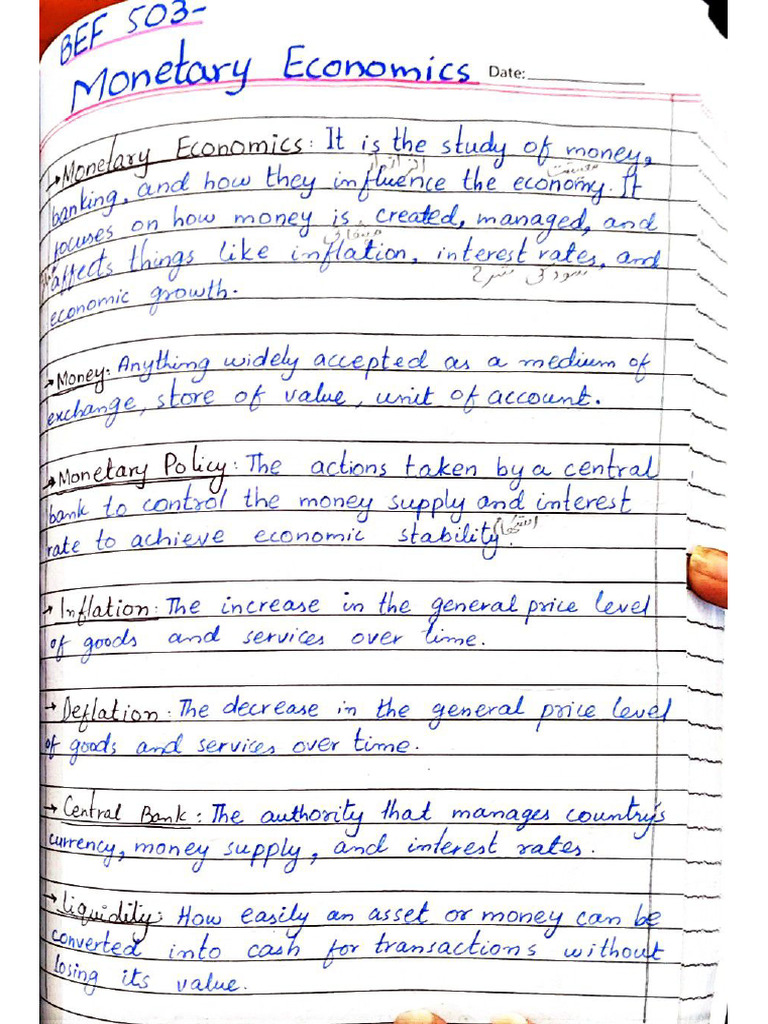 BEF 503-
Monetary Economics Date:
→Monetary Economics: It is the study of money,
banking, and how they influence the economy. It
focuses on how money is created, managed, and
affects things like inflation, interest rates, and
سود کی شرح
economic growth.
→Money: Anything widely accepted as a medium of
exchange, store of value, unit of account.
→Monetary Policy: The actions taken by a central
bank to control the money supply and interest
استحکام
rate to achieve economic stability.
→Inflation: The increase in the general price level
of goods and services over time.
→Deflation: The decrease in the general price level
of goods and services over time.
→Central Bank: The authority that manages country's
currency, money supply, and interest rates.
→Liquidity: How easily an asset or money can be
converted into cash for transactions without
losing its value.